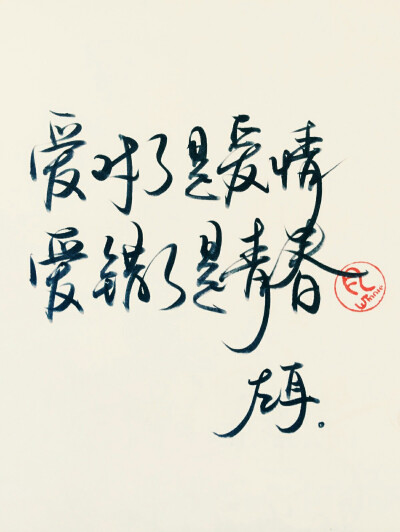 爱对了是爱情
爱错了是青春
左耳。